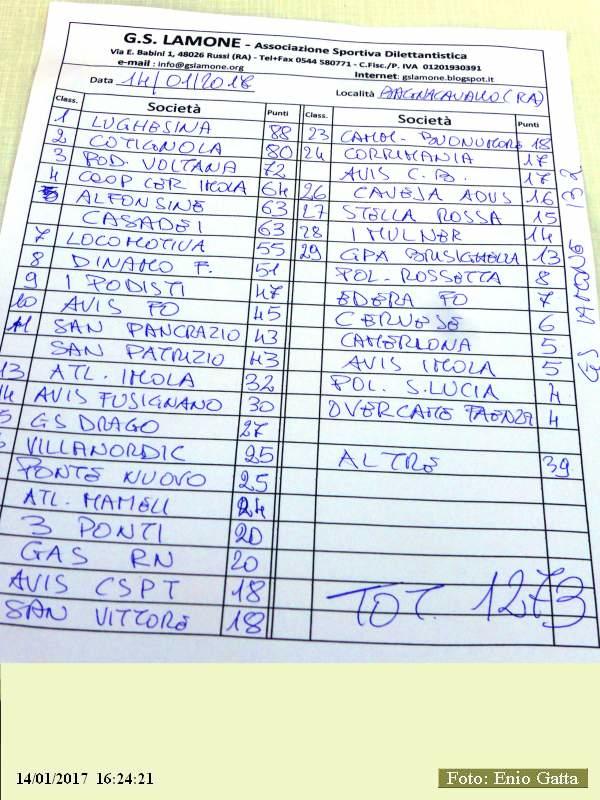 G.S. LAMONE - Associazione Sportiva Dilettantistica
Via E. Babini 1, 48026 Russi (RA) - Tel+Fax 0544 580771 - C.Fisc./P. IVA 01201930391
e-mail : info@gslamone.org Internet: gslamone.blogspot.it
Data 14/01/2018 Località BAGNACAVALLO (RA)
Class. Società Punti
1 LUGHESINA 88
2 COTIGNOLA 80
3 POD. VOLTANA 72
4 COOP CER IMOLA 64
5 ALFONSINE 63
CASADEI 63
7 LOCOMOTIVA 55
8 DINAMO F. 51
9 I PODISTI 47
10 AVIS FO 45
11 SAN PANCRAZIO 43
SAN PATRIZIO 43
13 ATL. IMOLA 32
14 AVIS FUSIGNANO 30
5 GS DRAGO 27
VILLANORDIC 25
PONTE NUOVO 25
ATL. MAMELI 24
3 PONTI 20
GAS RN 20
AVIS CSPT 18
SAN VITTORE 18
Class. Società Punti
23 CAMM. BUONUMORE 18
24 CORRIMANIA 17
AVIS C.B. 17
26 CAVEJA ADVS 16
27 STELLA ROSSA 15
28 I MULNER 14
29 GPA BRISIGHELLA 13
POL. ROSSETTA 8
EDERA FO 7
CERVESE 6
CAMERLONA 5
AVIS IMOLA 5
POL. S. LUCIA 4
OVERCAME FAENZA 4
ALTRE 39
TOT. 1273
14/01/2017 16:24:21
Foto: Enio Gatta